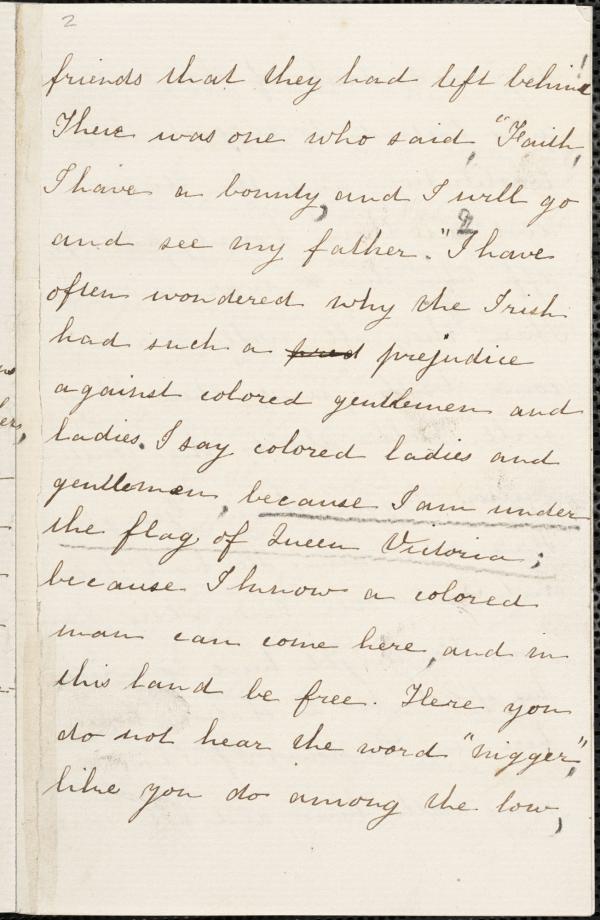 2
friends that they had left behind!
There was one who said, "Faith,
I have a bounty, and I will go
and see my father." I have
often wondered why the Irish
had such a pred prejudice
against colored gentlemen and
ladies. I say colored ladies and
gentlemen, because I am under
the flag of Queen Victoria;
because I know a colored
man can come here, and in
this land be free. Here you
do not hear the word "nigger,"
like you do among the low,